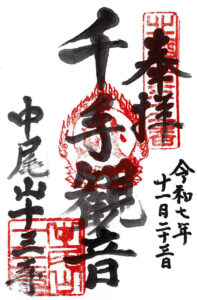 奉拝
令和七年
十一月二十三日
千手観音
中尾山十三寺